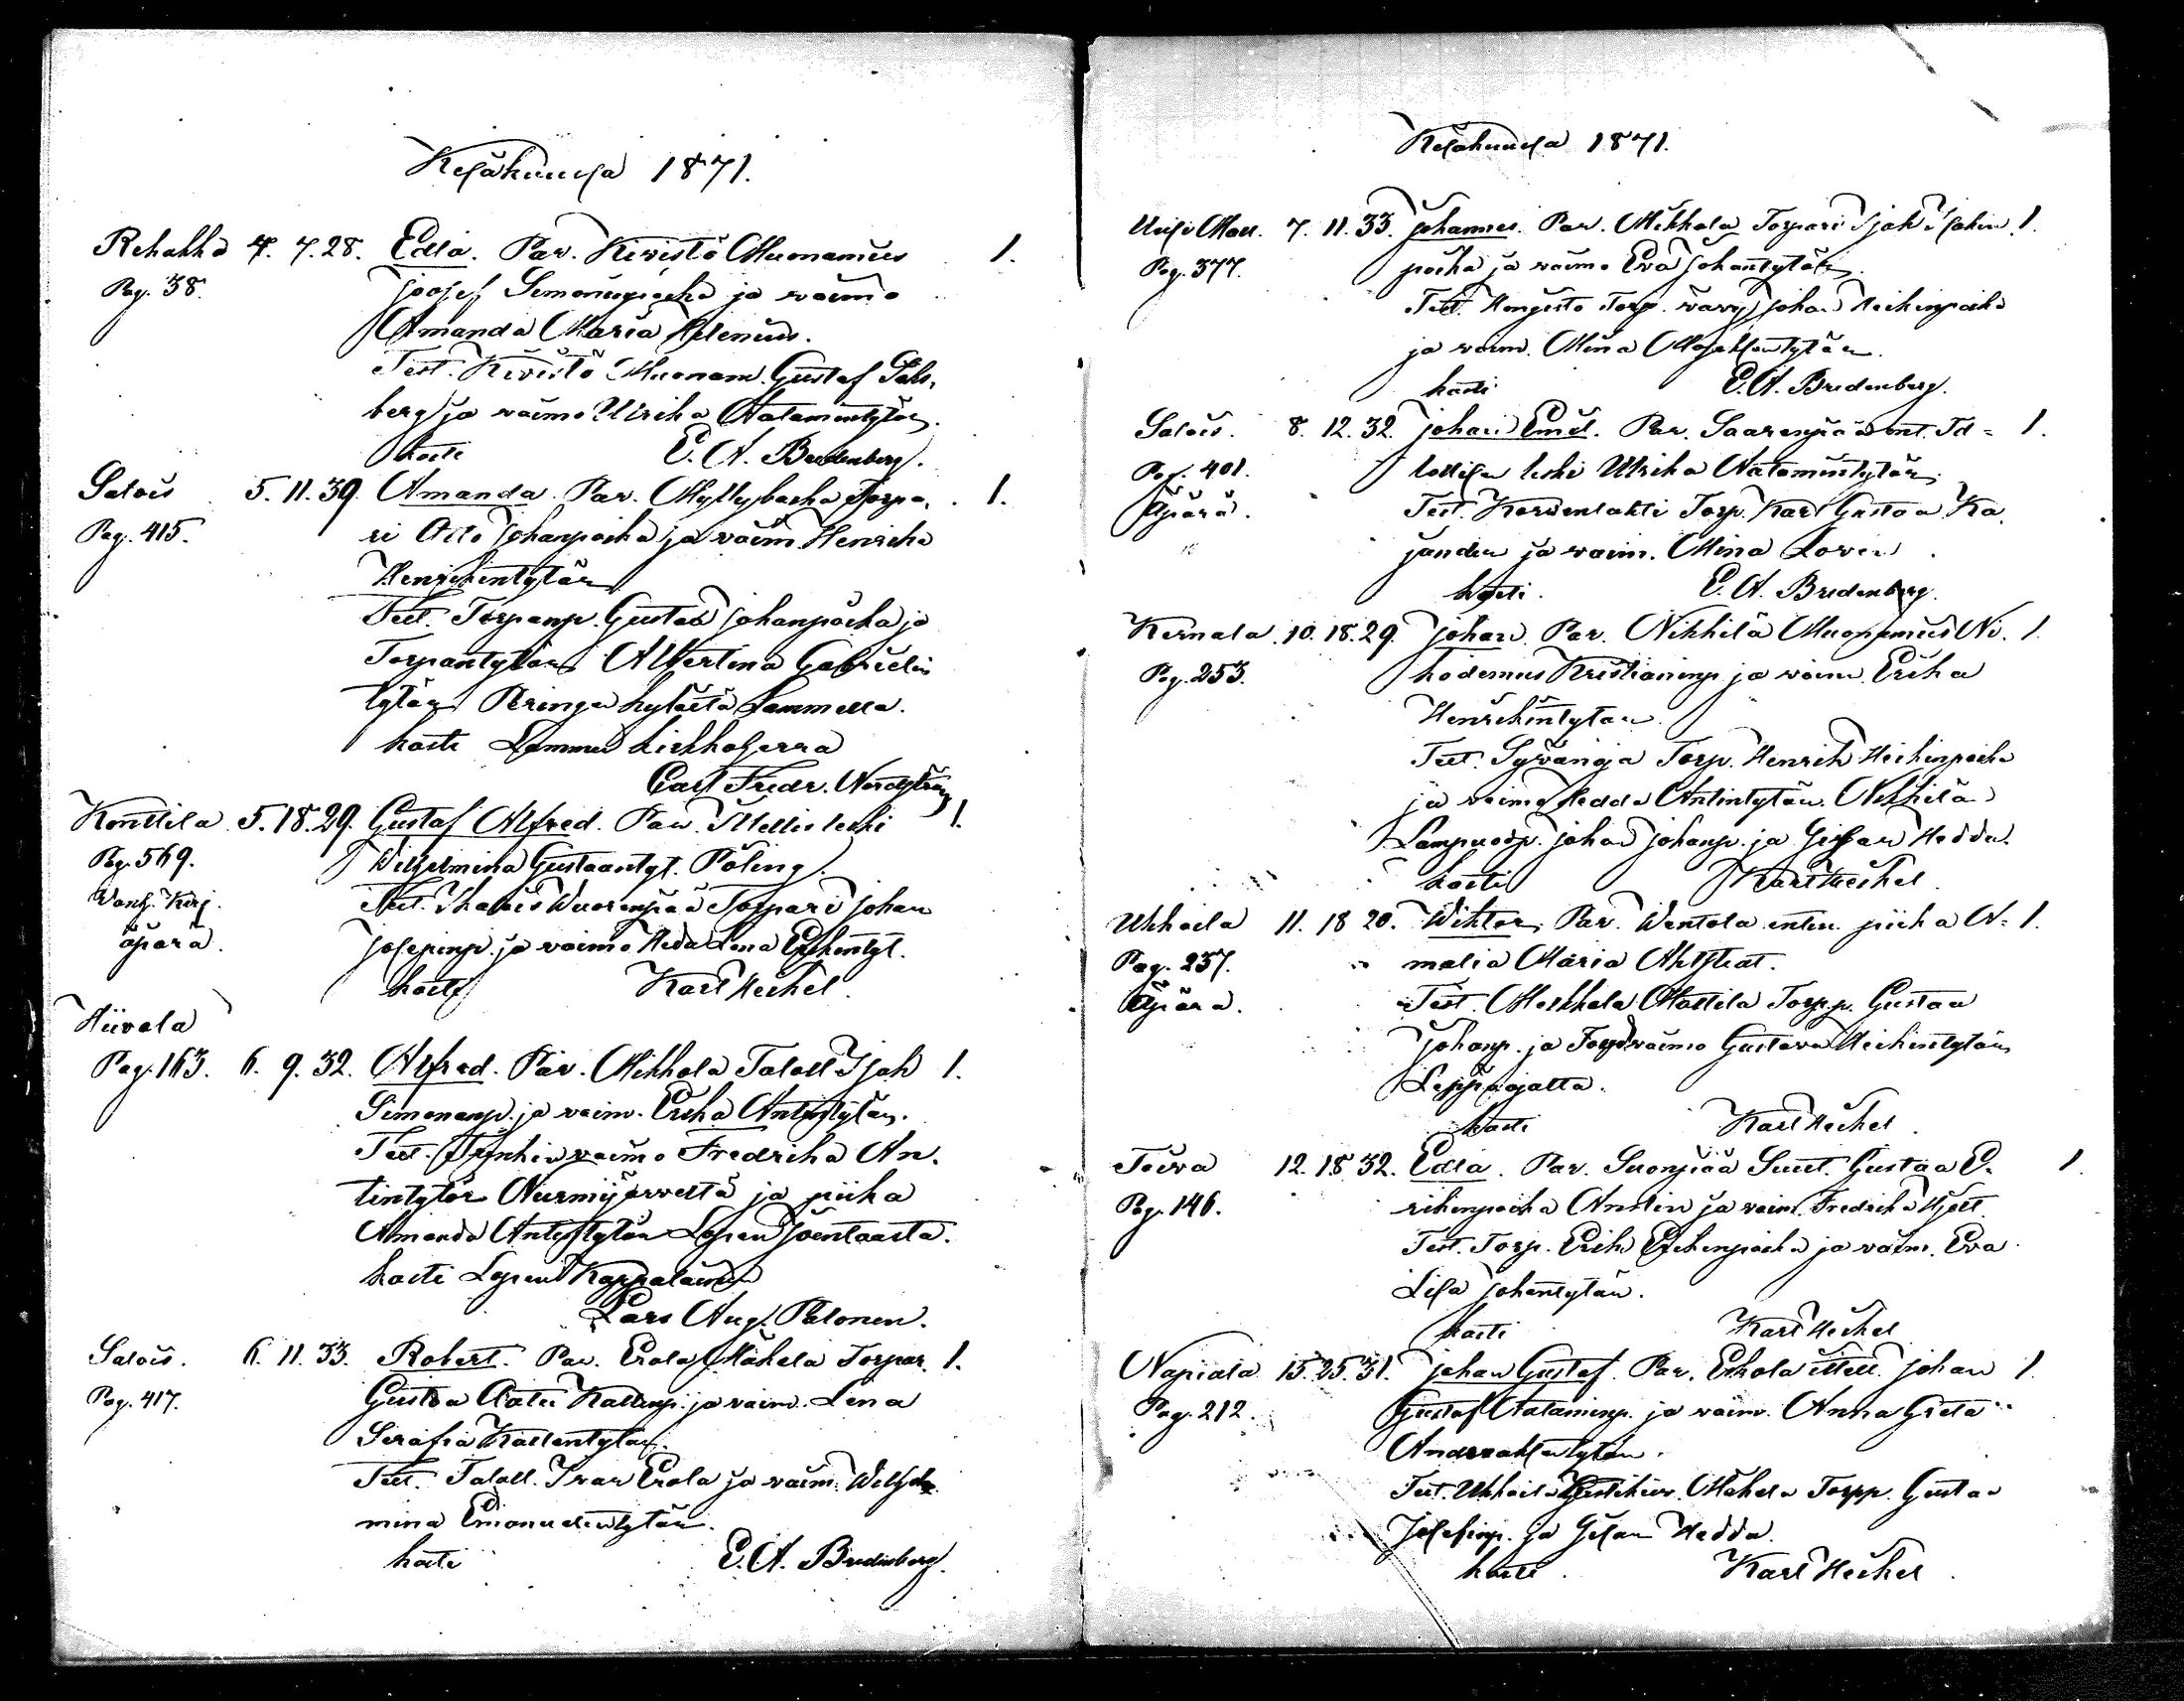 Kesäkuussa 1871.
Rehakka 4. 7. 28. Edla. Par. Kivistö Muonamies 1.
Pag. 38. Joosef Simoninpoika ja vaimo
Amanda Maria Helenius.
Test. Kivistö Muonam. Gustaf Sahl-
berg ja vaimo Ulrika Aatamintytär.
kasti E. A. Bredenberg.
Salois 5. 11. 39. Amanda. Par. Myllybacka Torpa- 1.
Pag. 415. ri Otto Johanpoika ja vaim. Henrika
Henrikintytär
Test. Torpanp. Gustaa Johanpoika ja
Torpantytär Albertina Gabrielin
tytär kylästä Lammella.
kasti Lammin kirkkoherra
Carl Fredr. Nordström
Konttila 5. 18. 29. Gustaf Alfred. Par. Itellis leski 1.
Pag. 569. Wilhelmina Gustaantyt. Påling.
Wank. Kirj. Test. Wuorenpää Torpari Johan
äpärä. Josepinp. ja vaimo Heda Lena Erikintyt.
kasti Karl Heikel.
Hiivola
Pag. 163. 6. 9. 32. Alfred. Par. Mikkola Taloll. Isak 1.
Simonanp. ja vaim. Erika Antintytär.
Test. vaimo Fredrika An-
tintytär Nurmijärveltä ja piika
Amanda Antintytär Lopen Joentaasta.
kasti Lopen Kappalainen
Lars Aug. Palonen.
Salois. 6. 11. 33. Robert. Par. Erola Mäkela Torpar. 1.
Pag. 417. Gustaa Aatu Kallenp. ja vaim. Lena
Serafia Kallentytär.
Test. Taloll. Ivar Erola ja vaim. Wilhel-
mina Emanuelintytär.
kasti E. A. Bredenberg.
Kesäkuussa 1871.
Uusi Maa. 7. 11. 33. Johannes. Par. Mikkola Torpari Isak Isakin 1.
Pag. 377. poika ja vaimo Eva Johantytär.
Test. Hongisto Torp. vävy Johan Heikinpoika
ja vaim. Mina
kasti E. A. Bredenberg.
Salois. 8. 12. 32. Johan Emil. Par. Saarenpää ent. It- 1.
Pag. 401. lellisen leski Ulrika Aatamintytär.
Äpärä. Test. Korvenlahti Torp. Karl Gustaa Ka-
jander ja vaim. Mina Loven.
kasti. E. A. Bredenberg.
Kernala 10. 18. 29. Johan. Par. Nikkilä Muonamies Ni- 1.
Pag. 253. kodemus Kristianinp. ja vaim. Erika
Henrikintytär.
Test. Syvänoja Torp. Henrik Heikinpoika
ja vaimo Hedda Antintytär. Nikkilän
Lampuodp. Johan Johanp. ja Sisar Hedda.
kasti Karl Heikel.
Uhkoila 11. 18. 20. Wihtor. Par. Wentola enten. piika A- 1.
Pag. 237. malia Maria Ahlstedt.
Äpärä. Test. Mattila Torp.p. Gustaa
Johanp. ja Torp. vaimo Gustava Heikintytär
Leppäojalta.
kasti Karl Heikel.
Toiva 12. 18. 32. Edla. Par. Suonpää Suut. Gustaa E- 1.
Pag. 146. rikinpoika Anstén ja vaim. Fredrika Hjelt.
Test. Torp. Erik Erikinpoika ja vaim. Eva
Lisa Johantytär.
kasti Karl Heikel
Napiala 15. 25. 31. Johan Gustaf. Par. Erkola itell. Johan 1.
Pag. 212. Gustaf Aataminp. ja vaim. Anna Greta
Andersintytär.
Test. Uhkoila Mäkela Torpp. Gustaa
Josefinp. ja Sisar Hedda.
kasti. Karl Heikel.